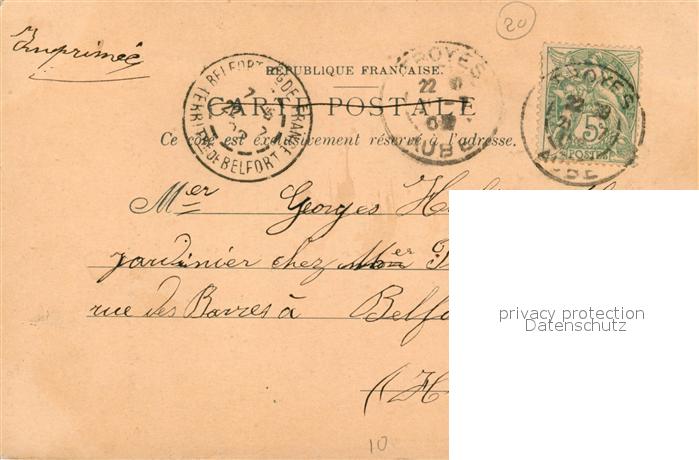 20
Imprimée
RÉPUBLIQUE FRANÇAISE.
CARTE POSTALE
Ce côté est exclusivement réservé à l'adresse.
BELFORT GDE FRANCE
TERRIT. DE BELFORT
TROYES
22
AUBE
TROYES
22
AUBE
5c
POSTES
Mer Georges
jardinier chez Mer
rue des Barres à Belfo
(H
privacy protection
Datenschutz
10